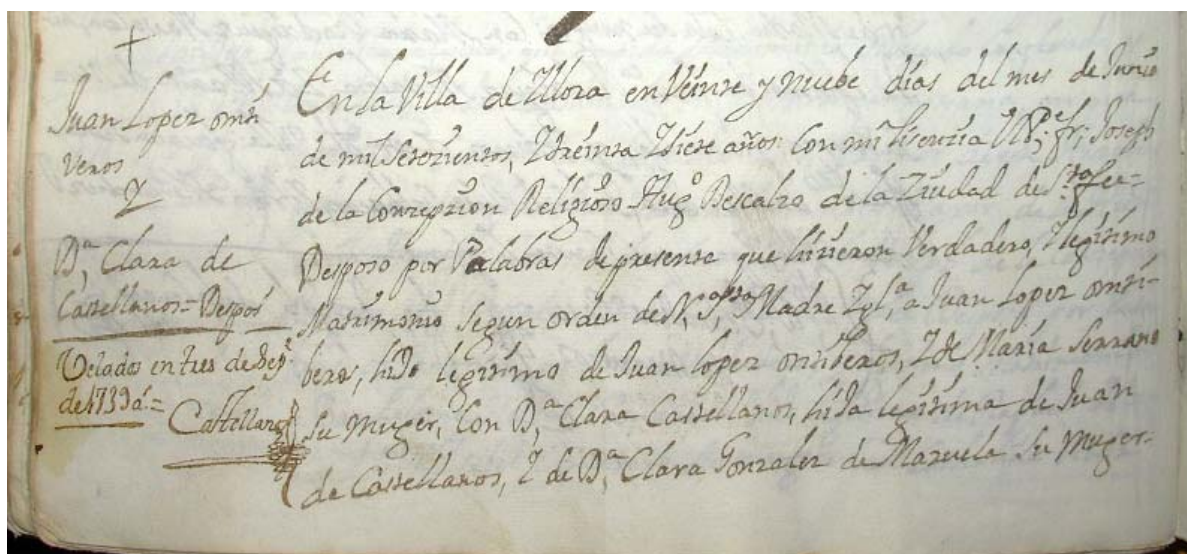 Juan Lopez onti
veros
Y
D.ª Clara de
Castellanos = Despos
Velados en tres de Sep.
de 1739 á.=
Castellanos
En la Villa de Yllora en Veinte y nuebe dias del mes de Junio
de mil setezientos, Y treinta Y siete años: Con mi lisenzia el P.e fr; Joseph
de la Conzepzion Religioso Aug.º Descalzo de la Ziudad de S.ta fee=
Desposo por Palabras de presente que hizieron Verdadero, Y legitimo
Matrimonio Segun orden de N,ª S,ta Madre Ygl,ª a Juan Lopez onti-
beros, hijo legitimo de Juan lopez ontiberos, Y de Maria Serrano
su muger, Con D,ª Clara Castellanos, hija legitima de Juan
de Castellanos, Y de D.ª Clara Gonzalez de Mazuela su muger-